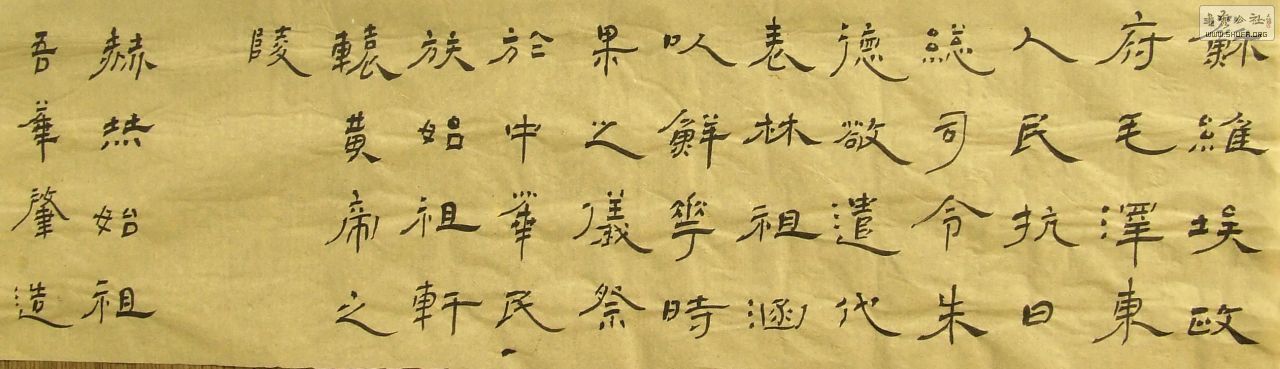 蘇維埃政
府毛澤東
人民抗日
總司令朱
德敬遣代
表林祖涵
以鮮花時
果之儀祭
於中華民
族始祖軒
轅黃帝之
陵
赫赫始祖
吾華肇造
WWW.SHUER.ORG